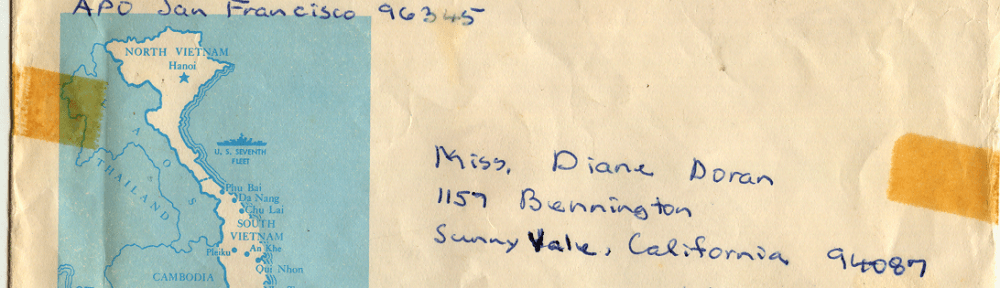 APO San Francisco 96345
NORTH VIETNAM
Hanoi
LAOS
U. S. SEVENTH
FLEET
THAILAND
Miss, Diane Doran
1157 Bennington
Sunny Vale, California 94087
Phu Bai
Da Nang
Chu Lai
SOUTH
VIETNAM
Pleiku
An Khe
Qui Nhon
CAMBODIA